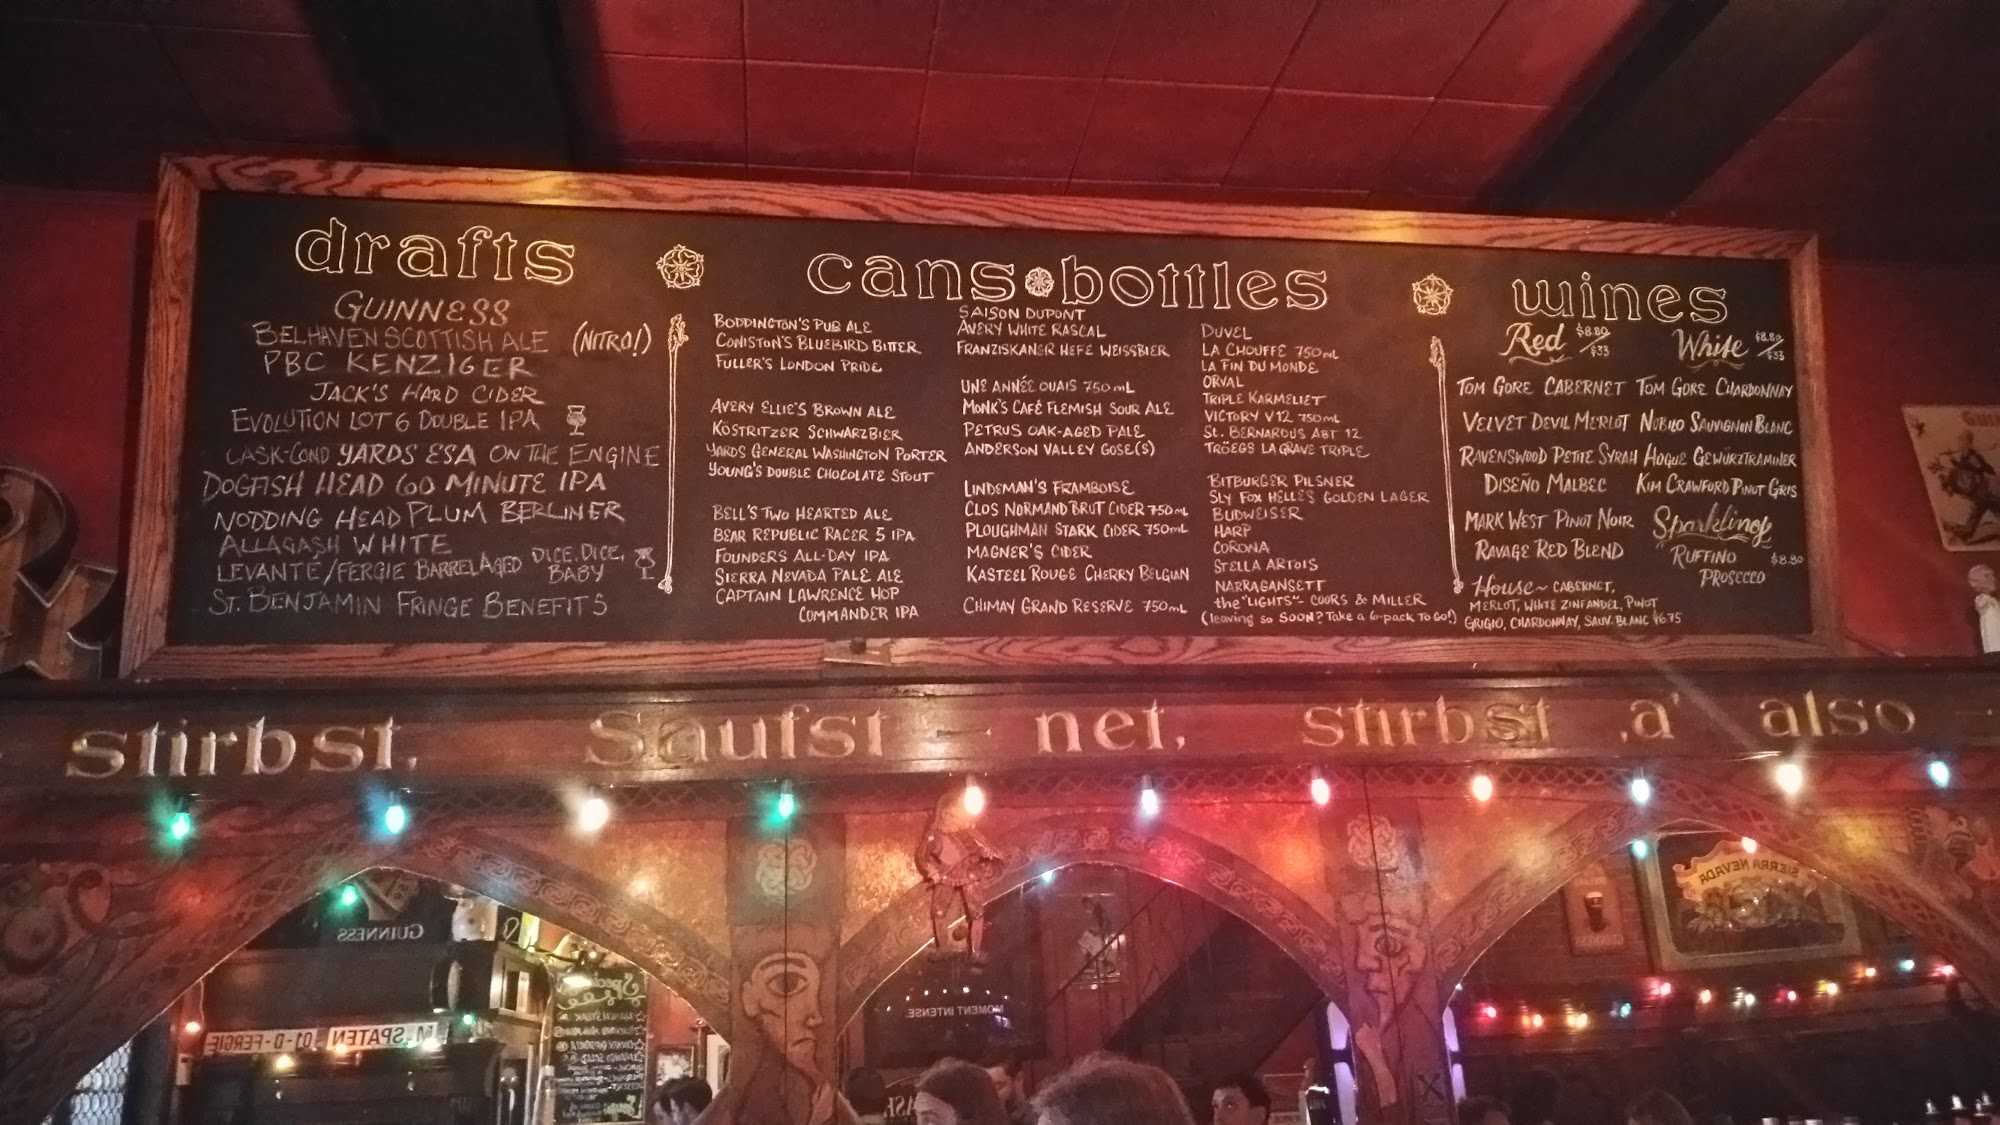 drafts
GUINNESS
BELHAVEN SCOTTISH ALE (NITRO!)
PBC KENZIGER
JACK'S HARD CIDER
EVOLUTION LOT 6 DOUBLE IPA
CASK-COND YARDS ESA ON THE ENGINE
DOGFISH HEAD 60 MINUTE IPA
NODDING HEAD PLUM BERLINER
ALLAGASH WHITE
LEVANTE/FERGIE BARREL AGED DICE, DICE, BABY
ST. BENJAMIN FRINGE BENEFITS
cans bottles
BODDINGTON'S PUB ALE
CONISTON'S BLUEBIRD BITTER
FULLER'S LONDON PRIDE
AVERY ELLIE'S BROWN ALE
KOSTRITZER SCHWARZBIER
YARDS GENERAL WASHINGTON PORTER
YOUNG'S DOUBLE CHOCOLATE STOUT
BELL'S TWO HEARTED ALE
BEAR REPUBLIC RACER 5 IPA
FOUNDERS ALL-DAY IPA
SIERRA NEVADA PALE ALE
CAPTAIN LAWRENCE HOP
COMMANDER IPA
SAISON DUPONT
AVERY WHITE RASCAL
FRANZISKANER HEFE WEISSBIER
UNE ANNÉE OUAIS 750 mL
MONK'S CAFÉ FLEMISH SOUR ALE
PETRUS OAK-AGED PALE
ANDERSON VALLEY GOSE(S)
LINDEMAN'S FRAMBOISE
CLOS NORMAND BRUT CIDER 750 mL
PLOUGHMAN STARK CIDER 750mL
MAGNER'S CIDER
KASTEEL ROUGE CHERRY BELGIAN
CHIMAY GRAND RESERVE 750mL
DUVEL
LA CHOUFFE 750 mL
LA FIN DU MONDE
ORVAL
TRIPLE KARMELIET
VICTORY V12 750 mL
ST. BERNARDUS ABT 12
TRÖEGS LA GRAVE TRIPLE
BITBURGER PILSNER
SLY FOX HELLES GOLDEN LAGER
BUDWEISER
HARP
CORONA
STELLA ARTOIS
NARRAGANSETT
the "LIGHTS" - COORS & MILLER
(leaving so SOON? Take a 6-pack To Go!)
wines
Red $8.80/$33
TOM GORE CABERNET
VELVET DEVIL MERLOT
RAVENSWOOD PETITE SYRAH
DISEÑO MALBEC
MARK WEST PINOT NOIR
RAVAGE RED BLEND
White $8.80/$33
TOM GORE CHARDONNAY
NOBILO SAUVIGNON BLANC
HOGUE GEWÜRZTRAMINER
KIM CRAWFORD PINOT GRIS
Sparkling
RUFFINO $8.80
PROSECCO
House ~ CABERNET,
MERLOT, WHITE ZINFANDEL, PINOT
GRIGIO, CHARDONNAY, SAUV. BLANC $6.75
stirbst, Saufst net, stirbst a' also
GUINNESS
SIERRA NEVADA
MOMENT INTENSE.
M. SPATEN 01-D-FERGIE